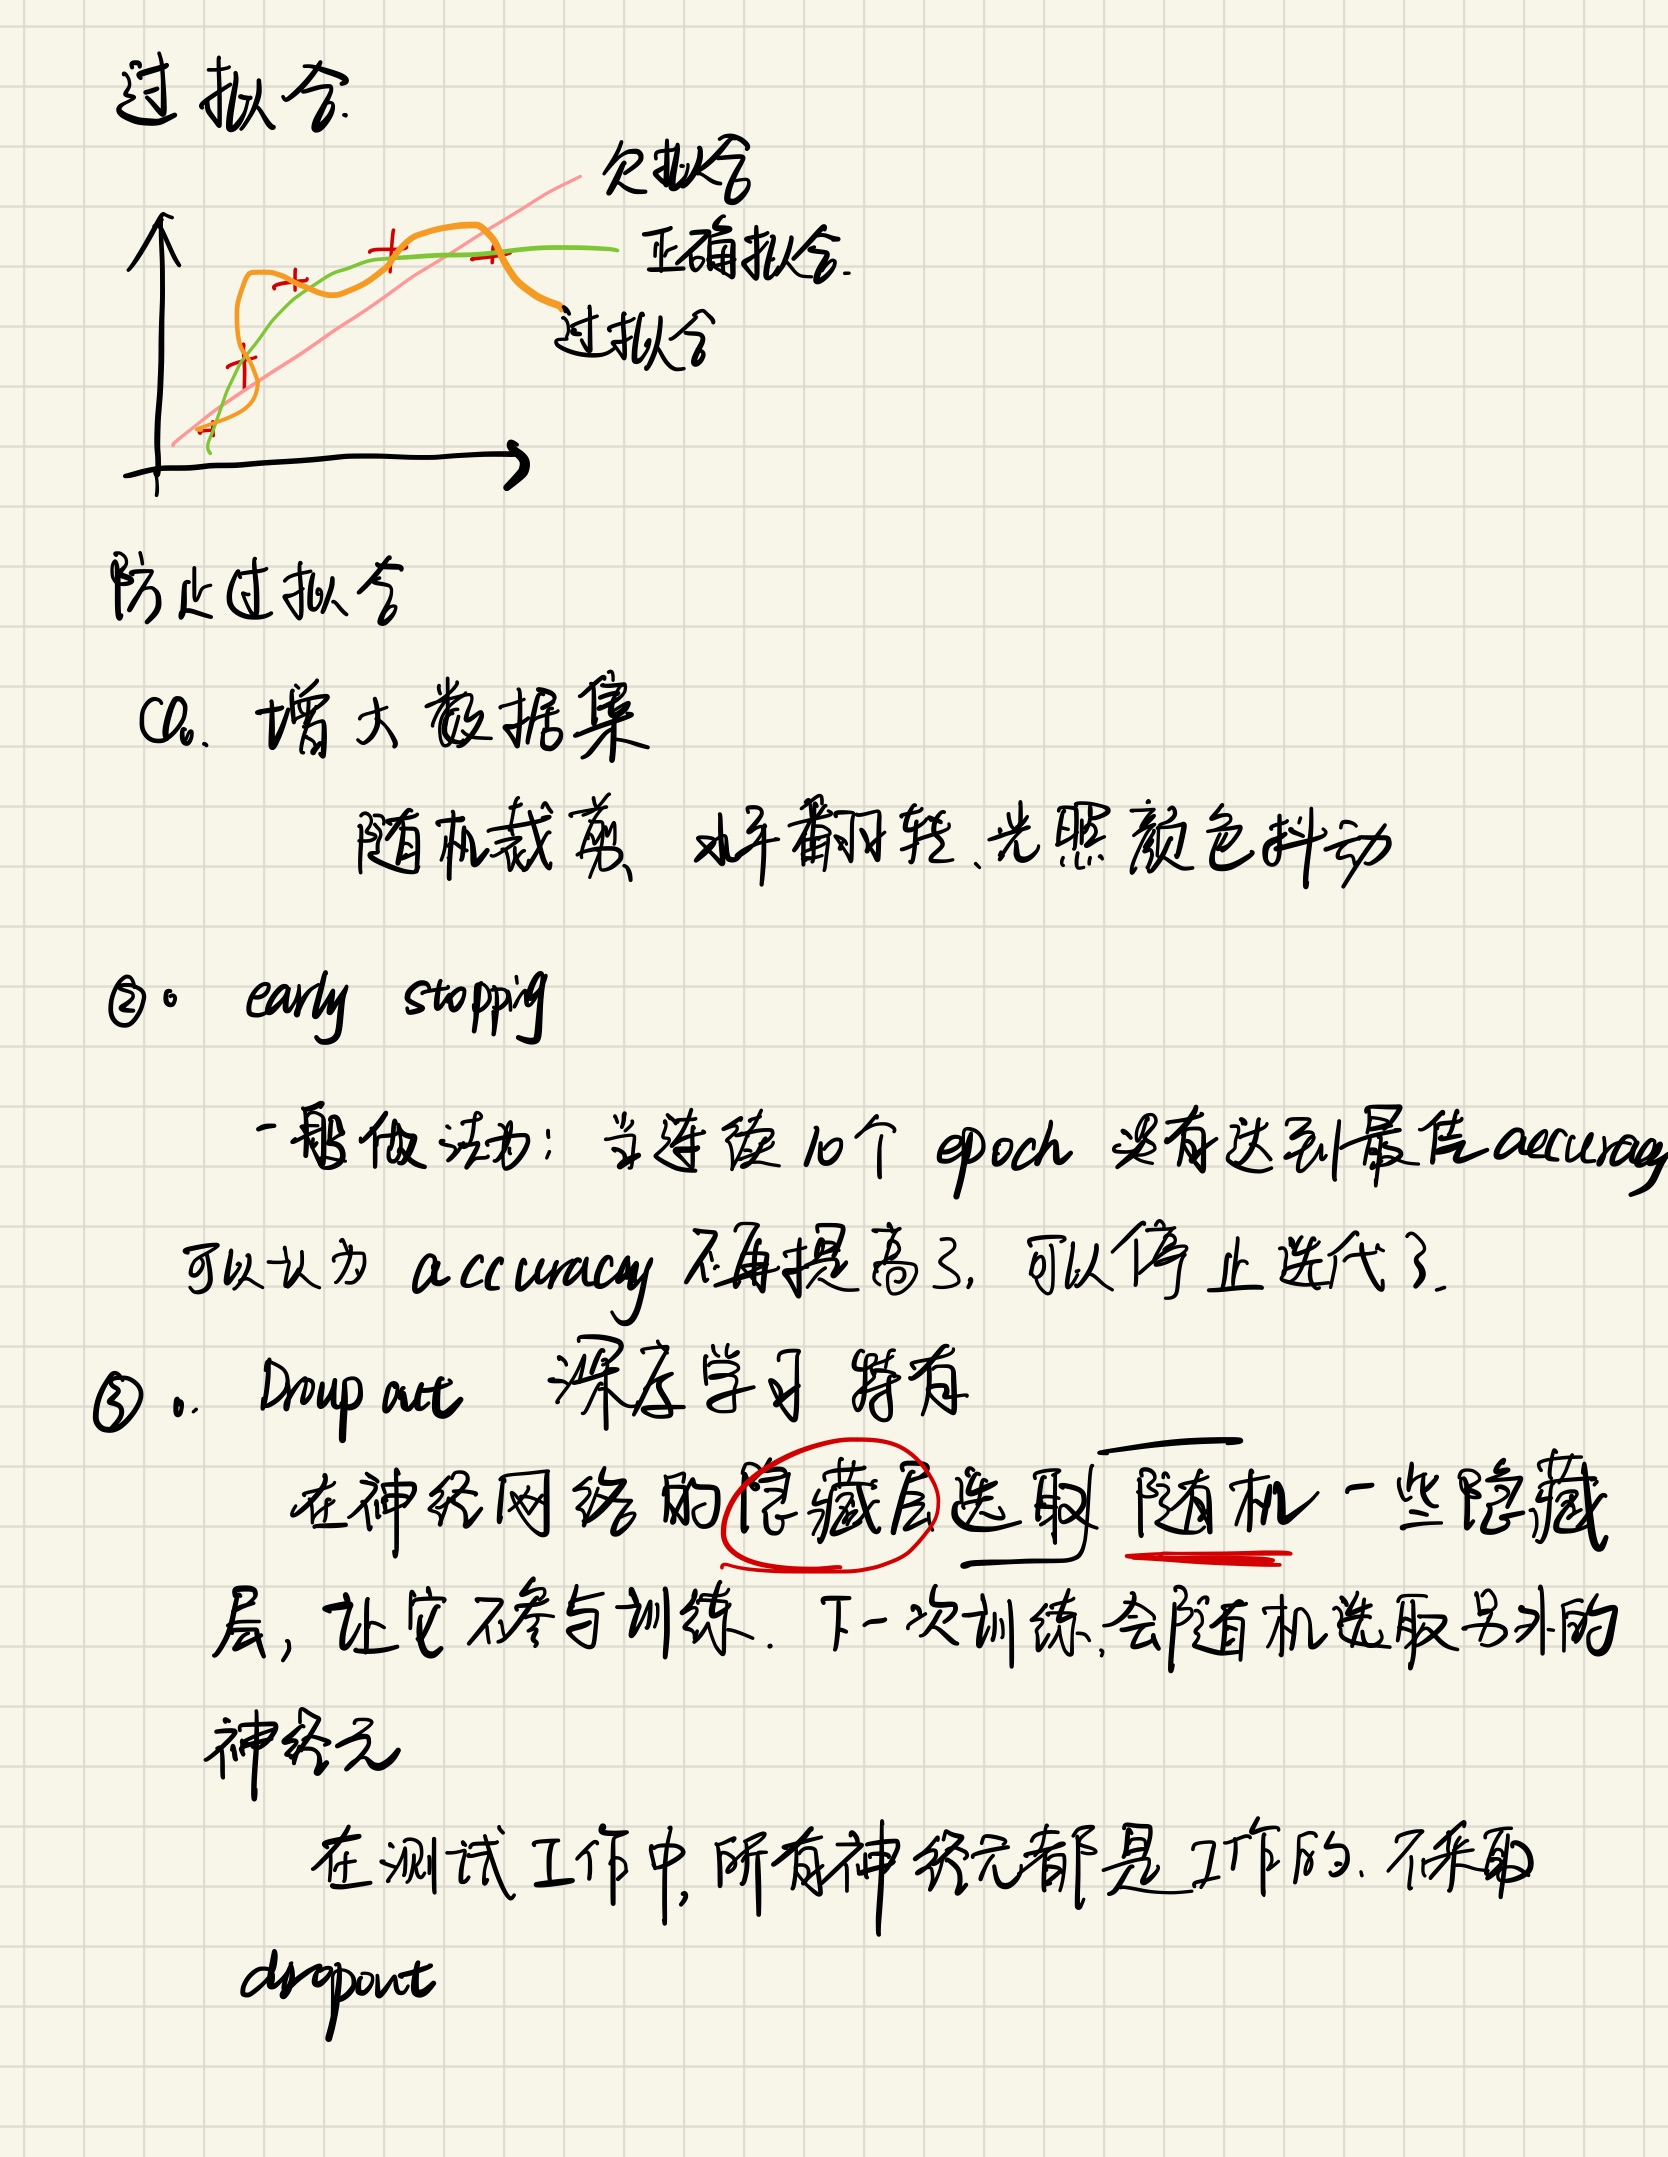 过拟合.
欠拟合
正确拟合.
过拟合
防止过拟合
①. 增大数据集
随机裁剪、水平翻转、光照颜色抖动
②。 early stoppig
一般做法为: 当连续10个 epoch 没有达到最佳accuracy
可以认为 accuracy 不再提高了, 可以停止迭代了.
③。. Droup out 深度学习 特有
在神经网络的隐藏层选取随机一些隐藏
层, 让它不参与训练. 下一次训练,会随机选取另外的
神经元
在测试工作中, 所有神经元都是工作的. 不采取
dropout